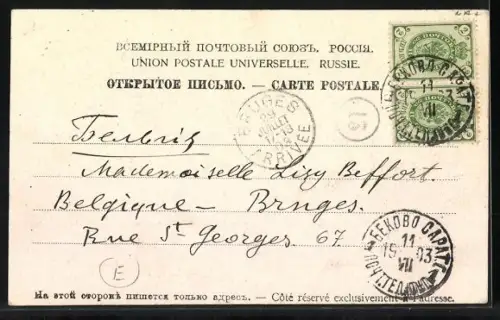 ВСЕМІРНЫЙ ПОЧТОВЫЙ СОЮЗЪ, РОССІЯ.
UNION POSTALE UNIVERSELLE, RUSSIE.
ОТКРЫТОЕ ПИСЬМО. — CARTE POSTALE.
БЕКОВО САРАТ.
11
VII
BRUGES
JUILLET
ARRIVÉE
Бельгія
Mademoiselle Lizy Beffort
Belgique — Bruges
Rue St Georges 67.
БЕКОВО САРАТ.
11
19 03
VII
E
На этой сторонѣ пишется только адресъ. — Côté réservé exclusivement à l'adresse.